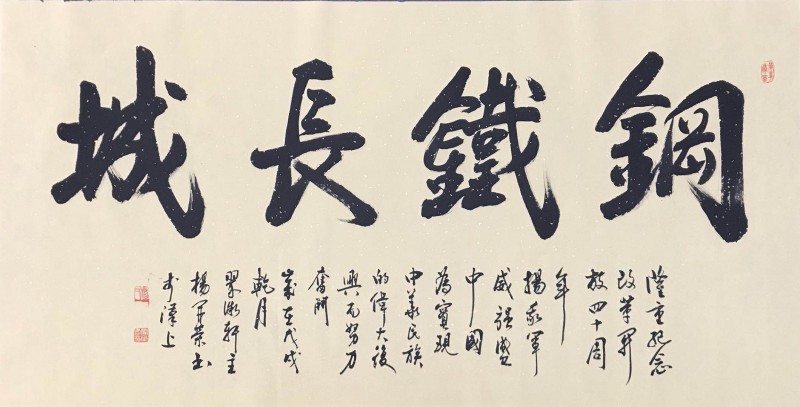 鋼鐵長城
隆重紀念
改革開
放四十周
年
揚我軍
威強盛
中國
為實現
中華民族
的偉大復
興而努力
奮鬥
歲在戊戌
乾月
翠微軒主
楊軍榮書
於漢上